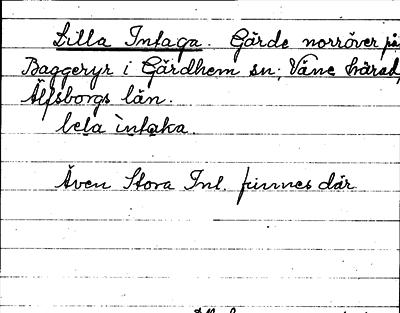 Lilla Intaga. Gärde norröver på
Baggeryr i Gärdhem sn; Väne härad,
Älfsborgs län.
lela intaka.
Även Stora Int. finnes där